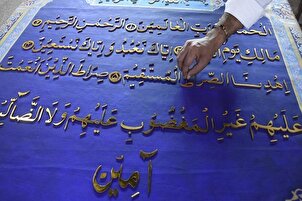 الْحَمْدُ لِلَّهِ رَبِّ الْعَالَمِينَ الرَّحْمَٰنِ الرَّحِيمِ
مَالِكِ يَوْمِ إِيَّاكَ نَعْبُدُ وَإِيَّاكَ نَسْتَعِينُ
اهْدِنَا الصِّرَاطَ الْمُسْتَقِيمَ صِرَاطَ الَّذِينَ أَنْعَمْتَ
عَلَيْهِمْ غَيْرِ الْمَغْضُوبِ عَلَيْهِمْ وَلَا الضَّالِّينَ
آمِين